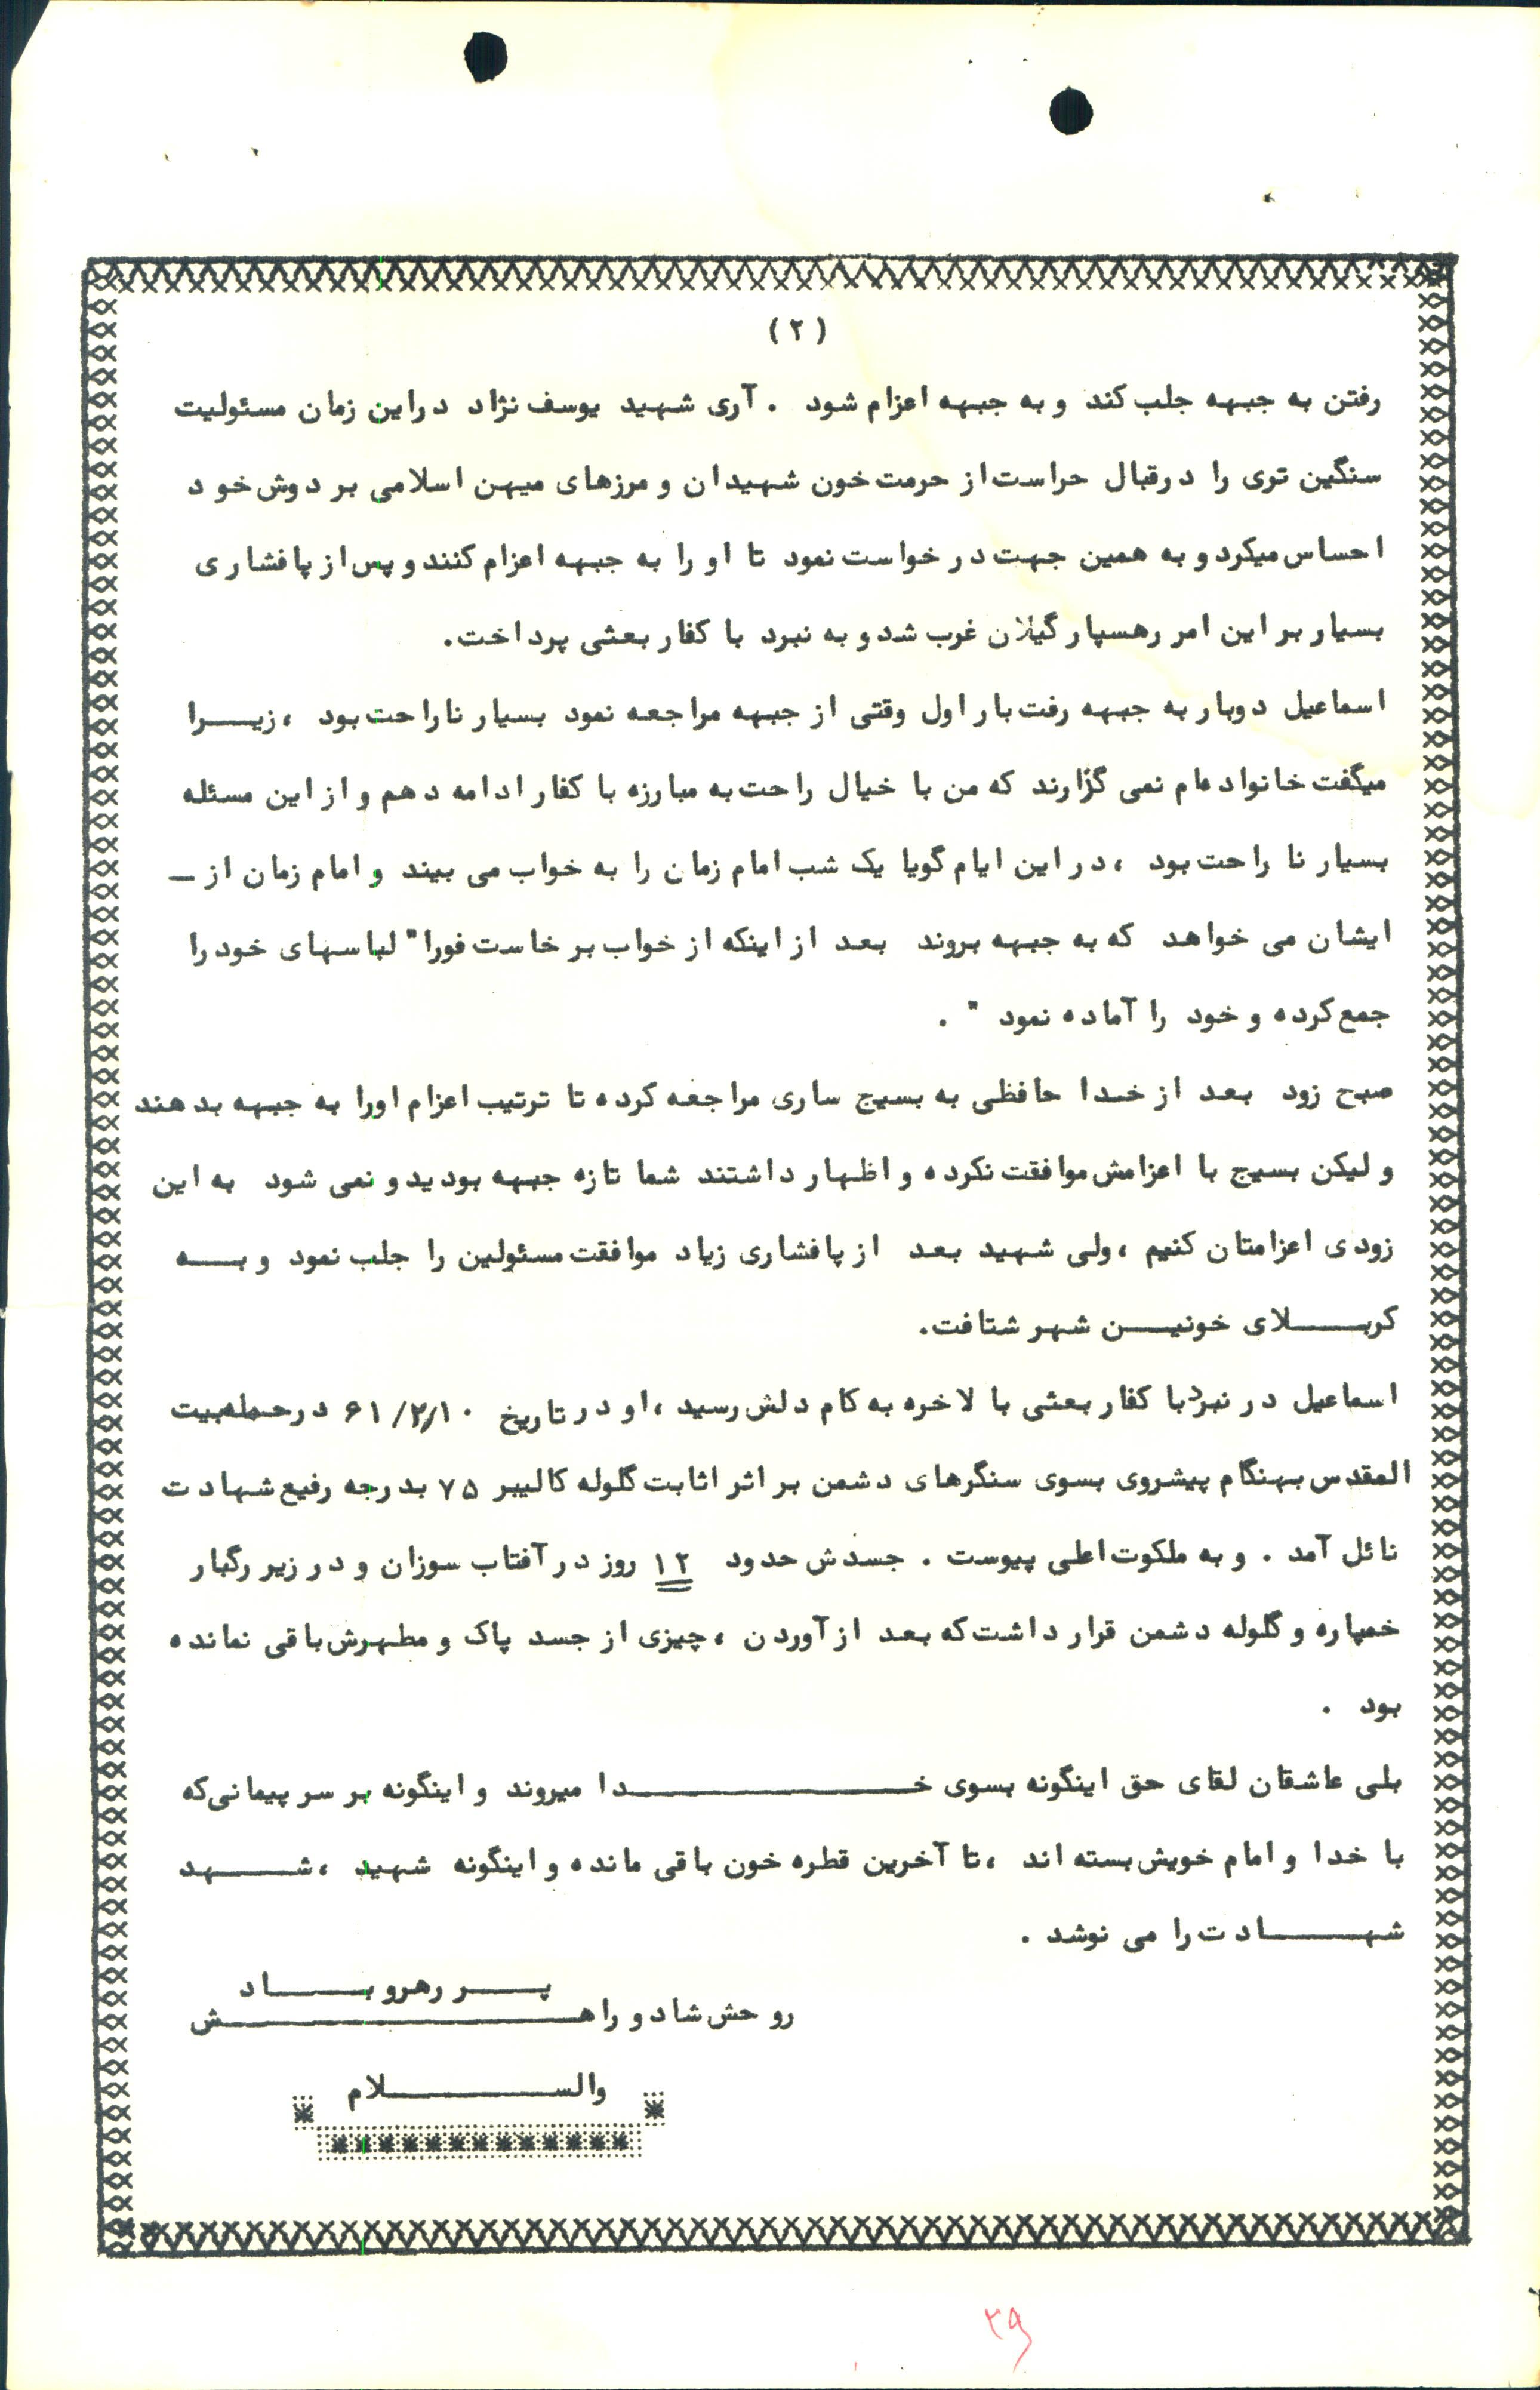 (۲)
رفتن به جبهه جلب کند و به جبهه اعزام شود . آری شهید یوسف نژاد دراین زمان مسئولیت
سنگین تری را درقبال حراست از حرمت خون شهیدان و مرزهای میهن اسلامی بر دوش خود
احساس میکرد و به همین جهت درخواست نمود تا او را به جبهه اعزام کنند و پس از پافشاری
بسیار بر این امر رهسپار گیلان غرب شد و به نبرد با کفار بعثی پرداخت.
اسماعیل دوبار به جبهه رفت بار اول وقتی از جبهه مراجعه نمود بسیار ناراحت بود ، زیـــرا
میگفت خانواده‌ام نمی گزارند که من با خیال راحت به مبارزه با کفار ادامه دهم و از این مسئله
بسیار نا راحت بود ، در این ایام گویا یک شب امام زمان را به خواب می بیند و امام زمان از ـ
ایشان می خواهد که به جبهه بروند بعد از اینکه از خواب برخاست فورا" لباسهای خود را
جمع کرده و خود را آماده نمود " .
صبح زود بعد از خدا حافظی به بسیج ساری مراجعه کرده تا ترتیب اعزام اورا به جبهه بدهند
و لیکن بسیج با اعزامش موافقت نکرده و اظهار داشتند شما تازه جبهه بودید و نمی شود به این
زودی اعزامتان کنیم ، ولی شهید بعد از پافشاری زیاد موافقت مسئولین را جلب نمود و بـــه
کربـــلای خونیـــن شهر شتافت.
اسماعیل در نبرد با کفار بعثی با لاخره به کام دلش رسید ، او در تاریخ ۶۱/۲/۱۰ درحمله بیت
المقدس بهنگام پیشروی بسوی سنگرهای دشمن بر اثر اثابت گلوله کالیبر ۷۵ بدرجه رفیع شهادت
نائل آمد . و به ملکوت اعلی پیوست . جسدش حدود ۱۲ روز در آفتاب سوزان و در زیر رگبار
خمپاره و گلوله دشمن قرار داشت که بعد از آوردن ، چیزی از جسد پاک و مطهرش باقی نمانده
بود .
بلی عاشقان لقای حق اینگونه بسوی خـــــــــدا میروند و اینگونه بر سر پیمانی که
با خدا و امام خویش بسته اند ، تا آخرین قطره خون باقی مانده و اینگونه شهید ، شـــهد
شهـــادت را می نوشد .
پـــر رهرو بـــاد
روحش شاد و راهـــــــــش
والســـــــلام
۲۹